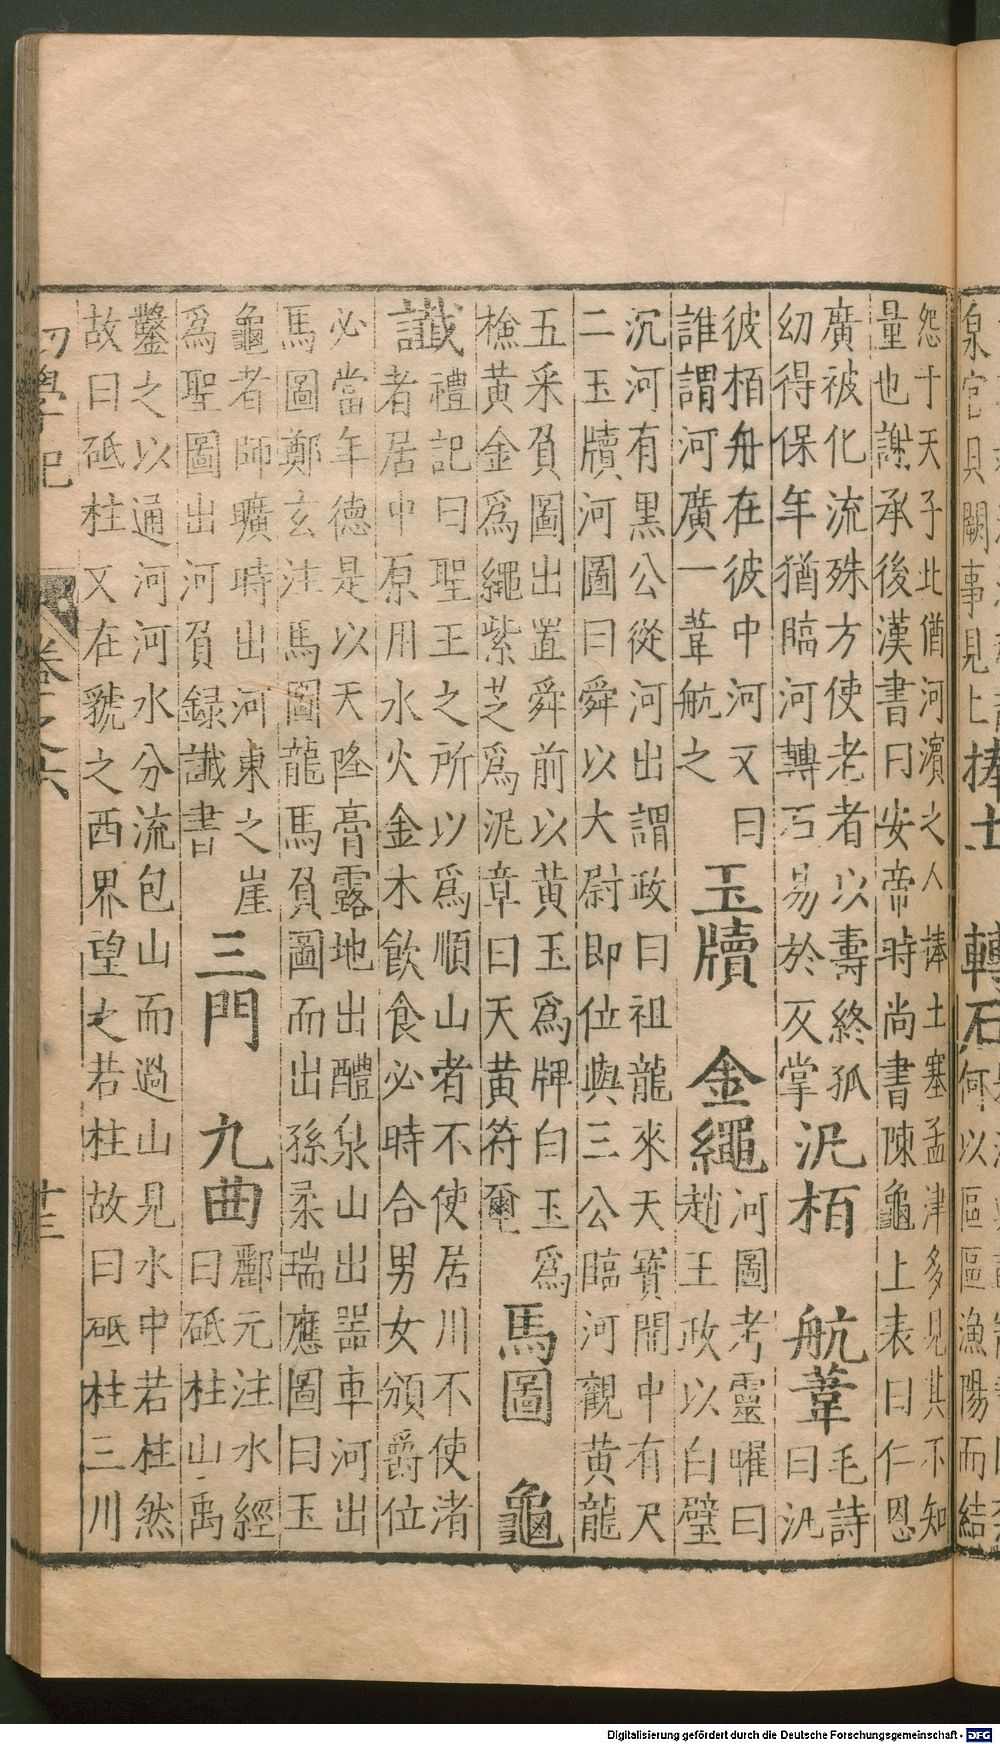 泉宮貝闕事見上
捧土 轉石
何以區區漁陽而結
怨十天子北偤河濱之人捧土塞孟津多見其不知
量也謝承後漢書曰安帝時尚書陳龜上表曰仁恩
廣被化流殊方使老者以壽終孤
幼得保年猶臨河轉石易於反掌
汎栢 航葦
毛詩
曰汎
彼栢舟在彼中河又曰
誰謂河廣一葦航之
玉牘 金繩
河圖考靈曜曰
趙王政以白璧
沉河有黒公從河出謂政曰祖龍來天寳開中有尺
二玉牘河圖曰舜以大尉即位與三公臨河觀黄龍
五采負圖出置舜前以黄玉爲牌白玉爲
檢黄金爲繩紫芝爲泥章曰天黄符璽
馬圖 龜
讖
禮記曰聖王之所以爲順山者不使居川不使渚
者居中原用水火金木飲食必時合男女頒爵位
必當年德是以天降膏露地出醴泉山出噐車河出
馬圖鄭玄注馬圖龍馬負圖而出孫柔瑞應圖曰玉
龜者師曠時出河東之崖
爲聖圖出河負録讖書
三門 九曲
酈元注水經
曰砥柱山禹
鑿之以通河河水分流包山而過山見水中若柱然
故曰砥柱又在虢之西界望之若柱故曰砥柱三川
初學記 卷之六